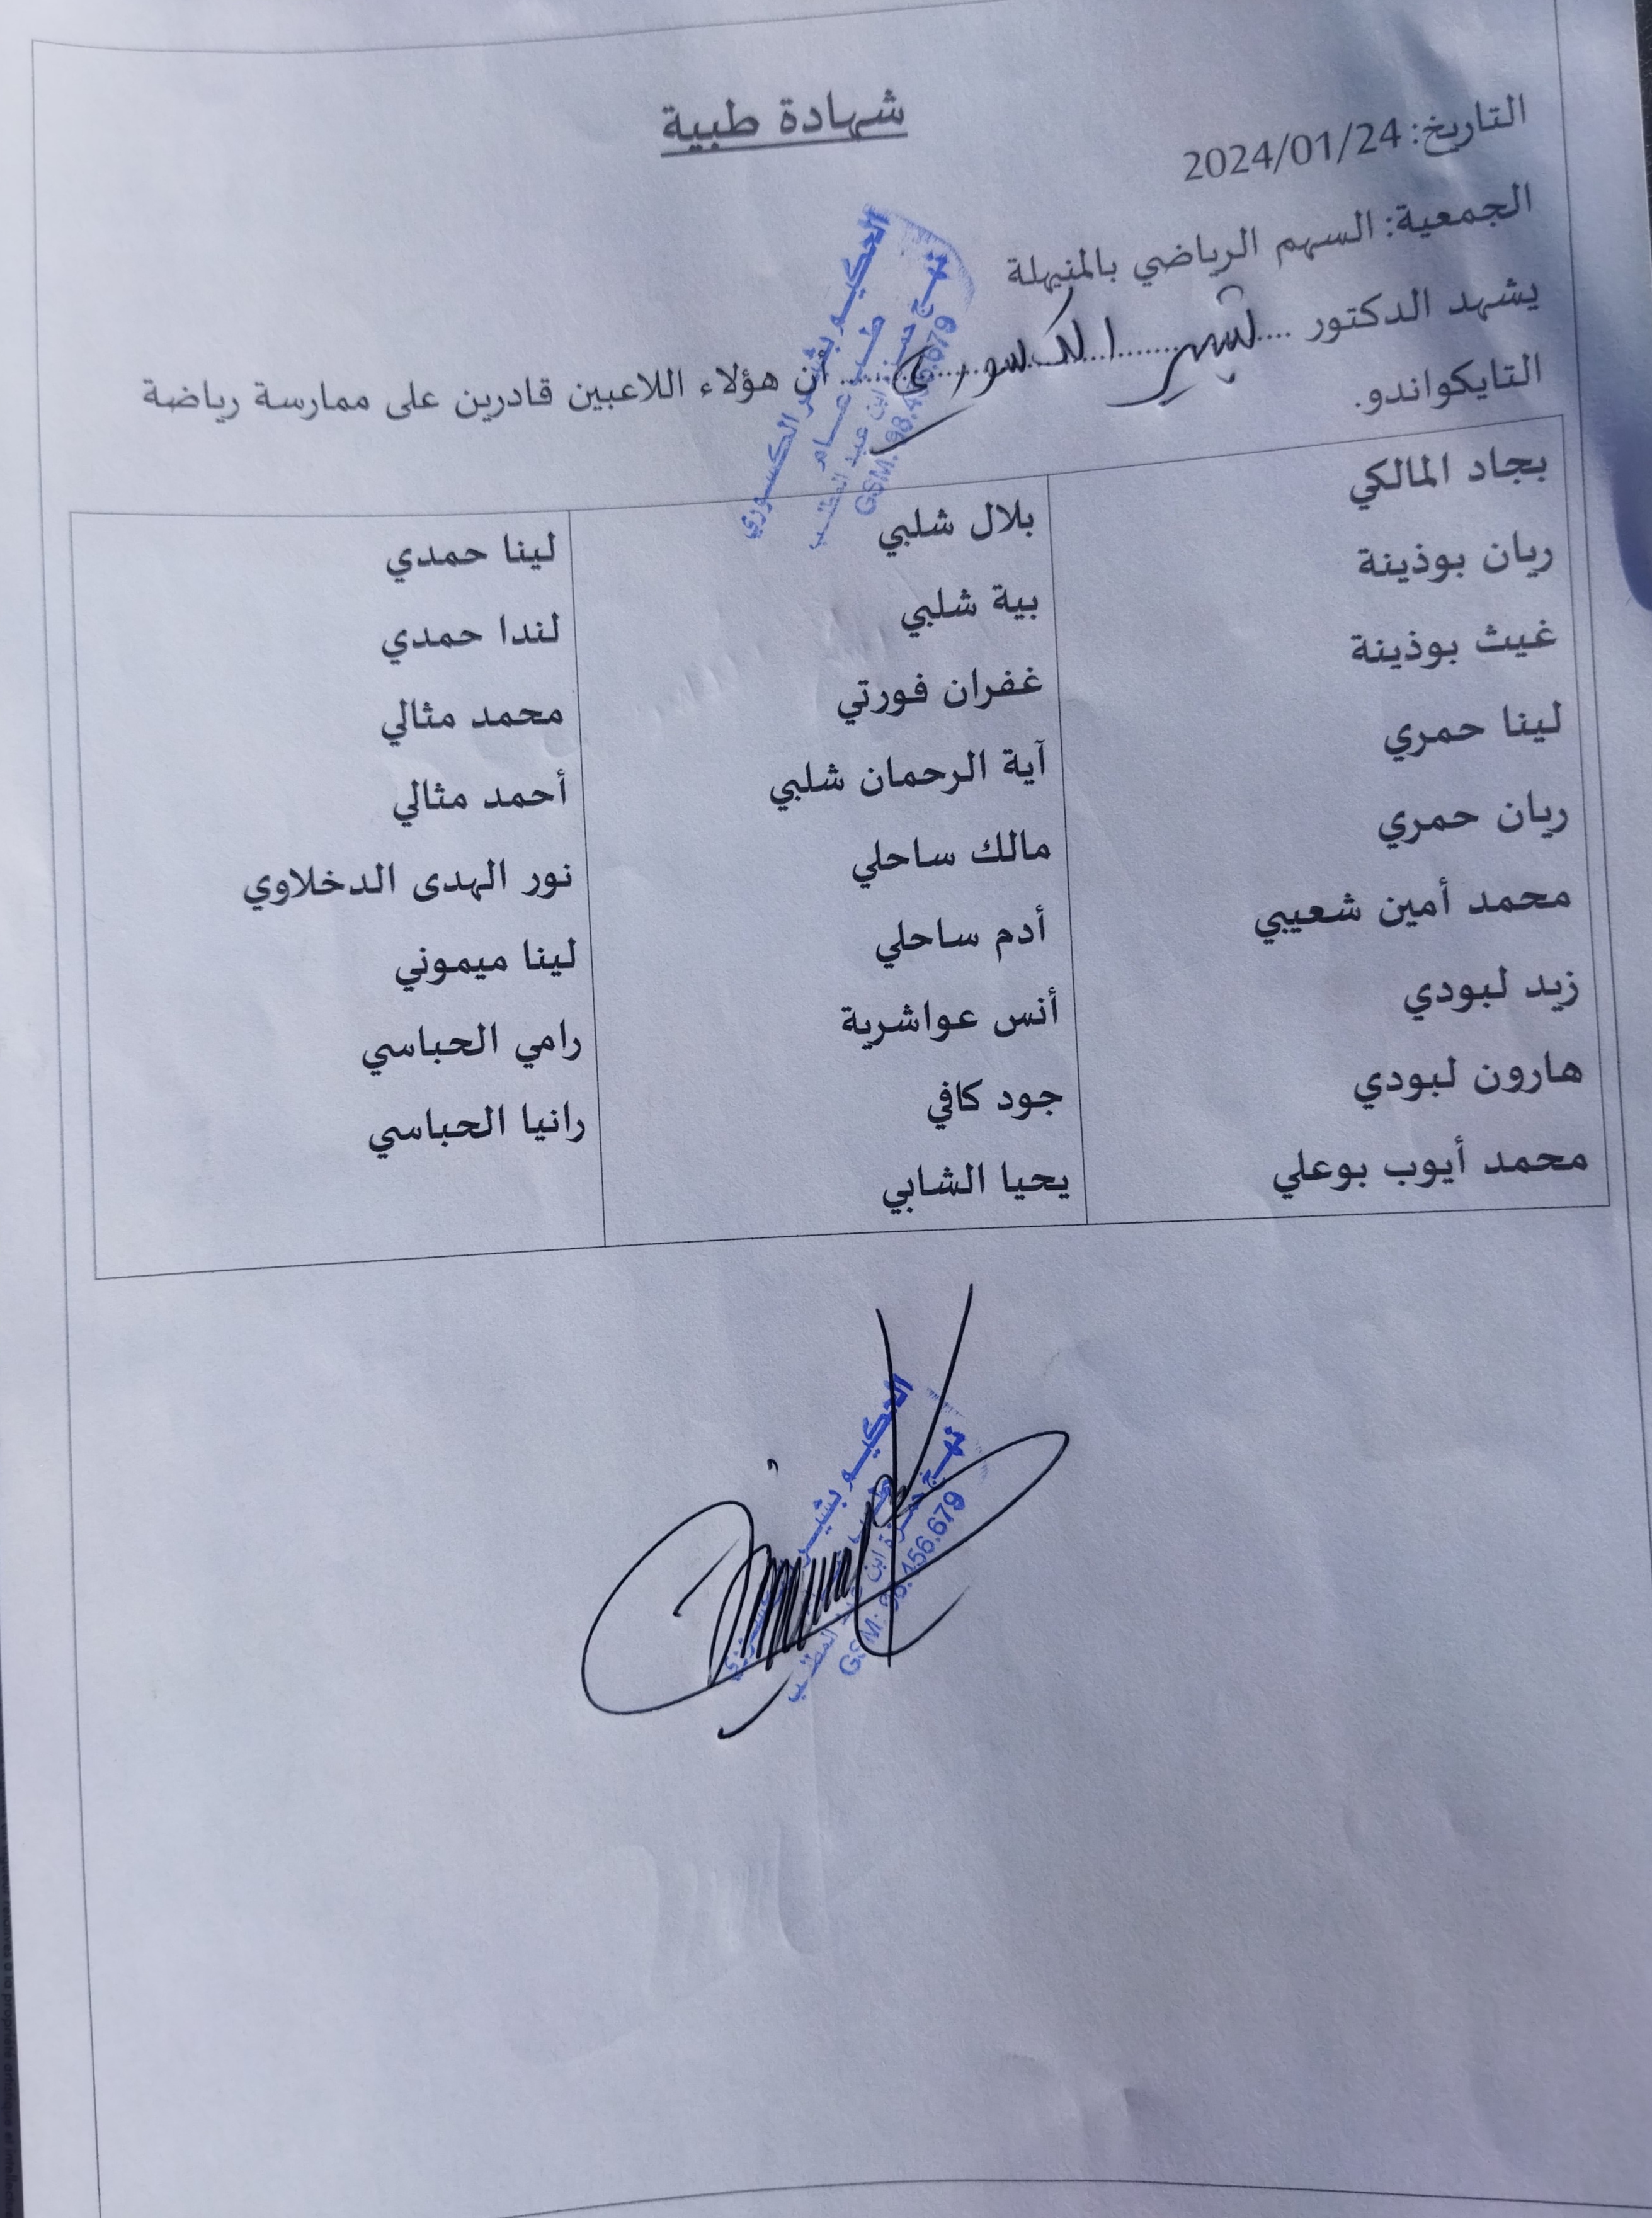 شهادة طبية
التاريخ: 2024/01/24
الجمعية: السهم الرياضي بالمنيهلة
يشهد الدكتور ... بشير الكسوري ... أن هؤلاء اللاعبين قادرين على ممارسة رياضة
التايكواندو.
الحكيم بشير الكسوري
طب عام
نهج حمزة ابن عبد المطلب
GSM: 98.456.679
بجاد المالكي
ريان بوذينة
غيث بوذينة
لينا حمري
ريان حمري
محمد أمين شعيبي
زيد لبودي
هارون لبودي
محمد أيوب بوعلي
بلال شلبي
بية شلبي
غفران فورتي
آية الرحمان شلبي
مالك ساحلي
أدم ساحلي
أنس عواشرية
جود كافي
يحيا الشابي
لينا حمدي
لندا حمدي
محمد مثالي
أحمد مثالي
نور الهدى الدخلاوي
لينا ميموني
رامي الحباسي
رانيا الحباسي
الحكيم بشير
نهج حمزة ابن عبد المطلب
GSM: 98.456.679